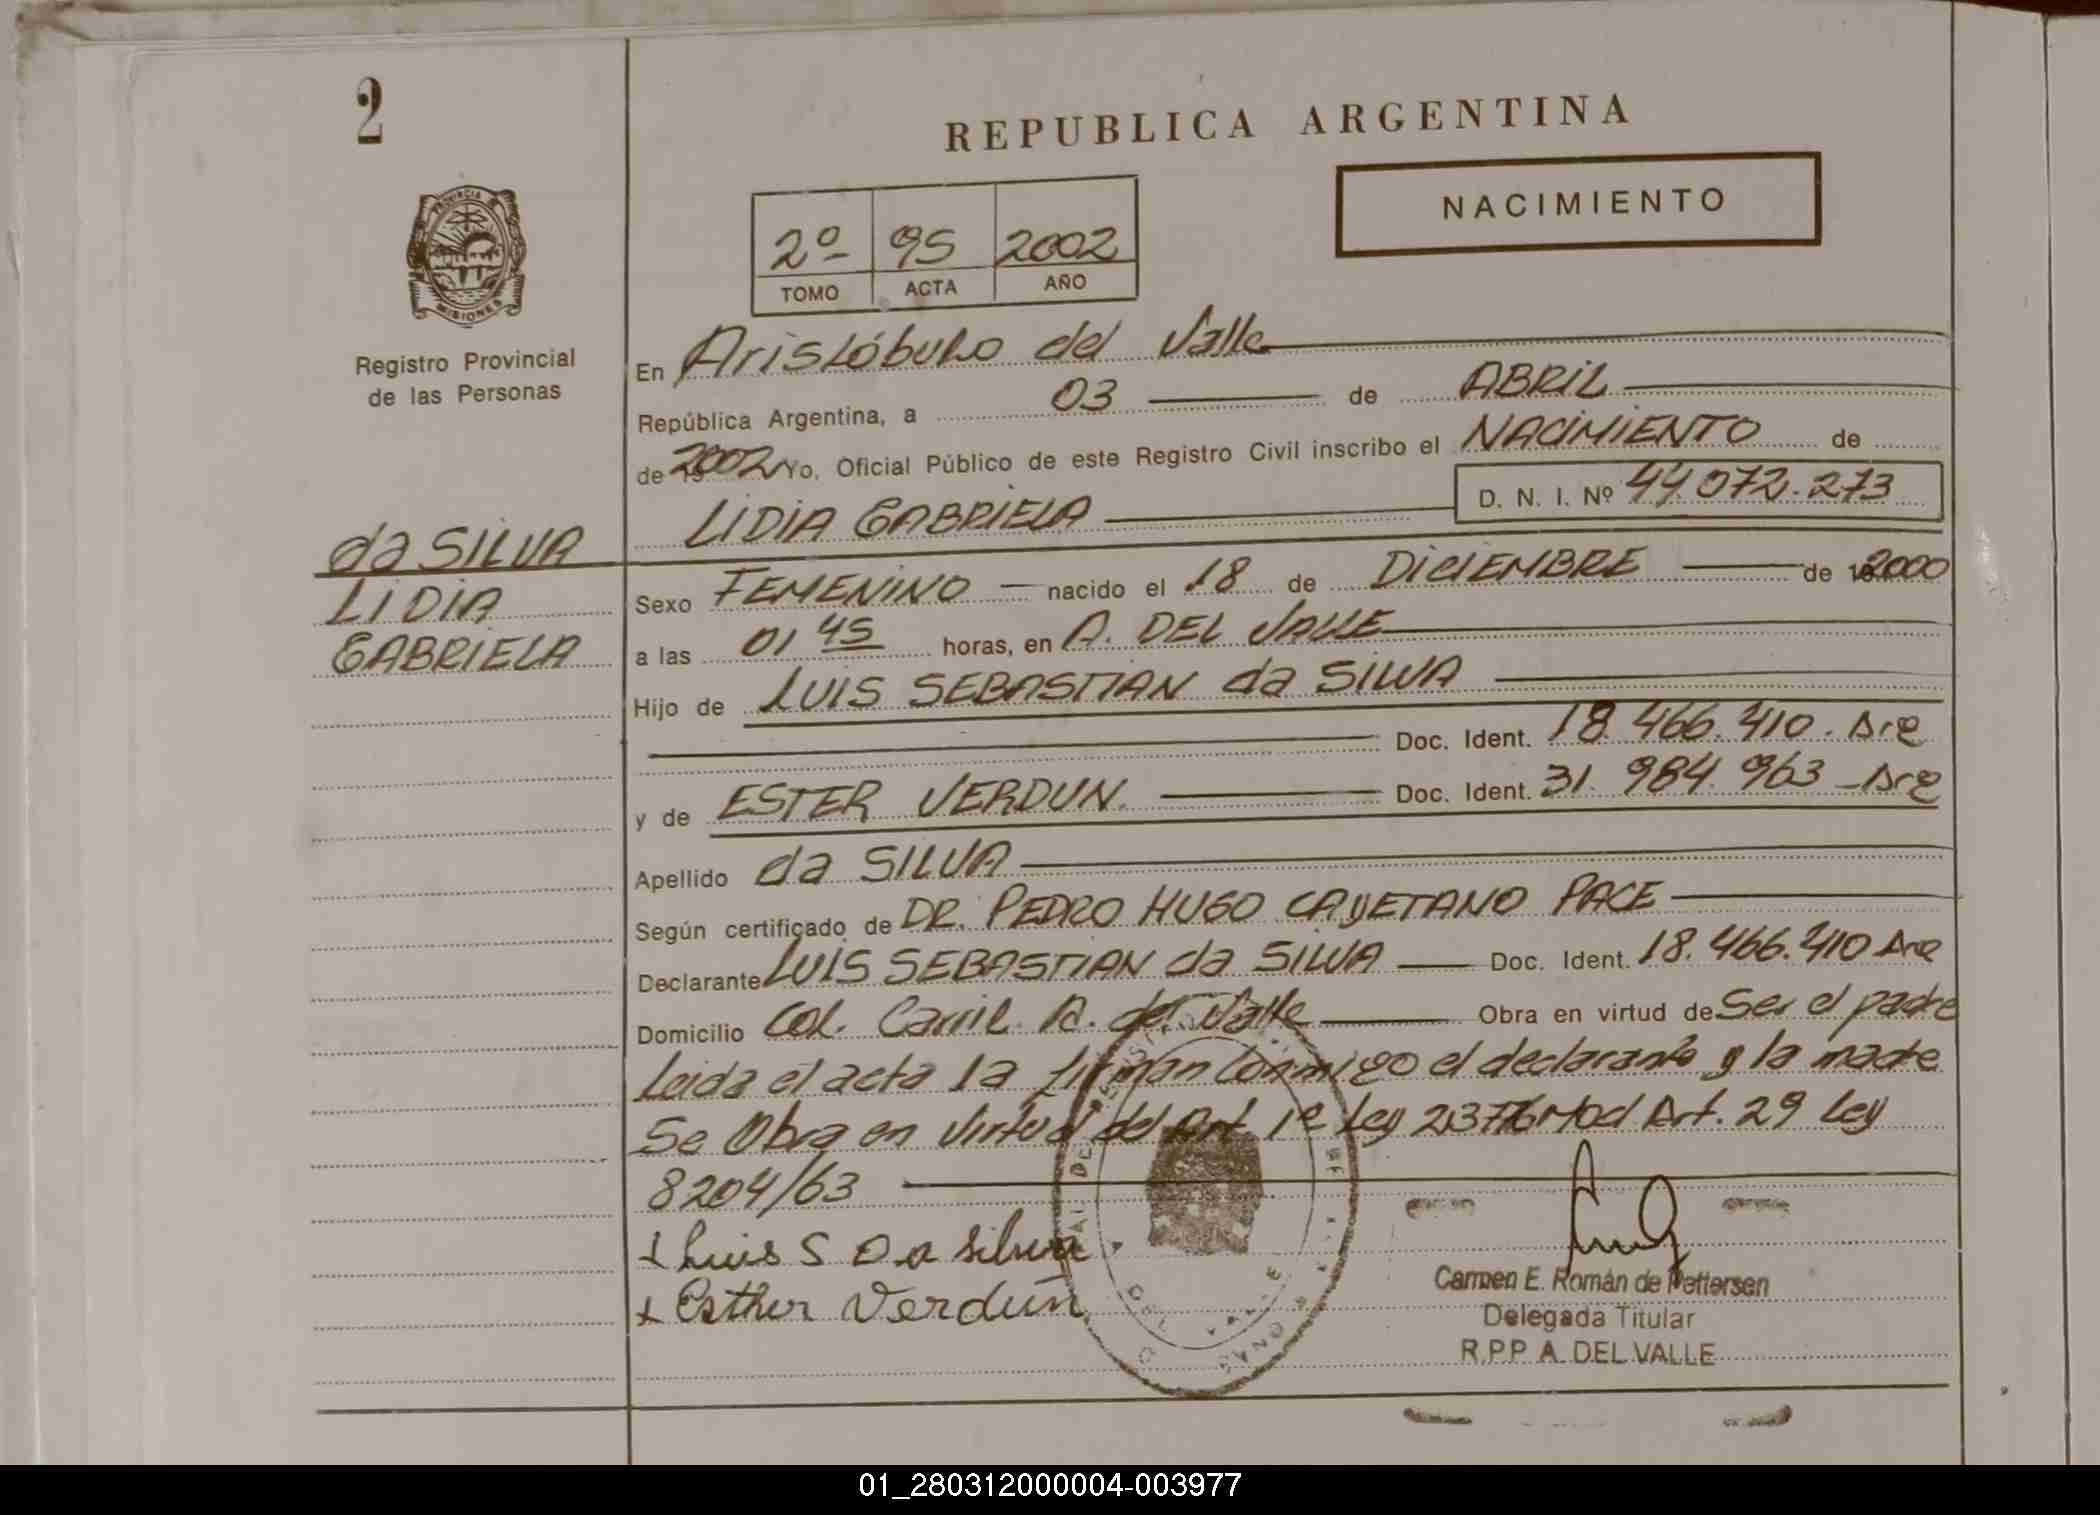 2
REPUBLICA ARGENTINA
NACIMIENTO
2º 95 2002
TOMO ACTA AÑO
PROVINCIA DE
MISIONES
Registro Provincial
de las Personas
En Aristóbulo del Valle
República Argentina, a 03 de ABRIL
de 2002 Yo, Oficial Público de este Registro Civil inscribo el NACIMIENTO de
D. N. I. Nº 44.072.273
LIDIA GABRIELA
da SILVA
LIDIA
GABRIELA
Sexo FEMENINO nacido el 18 de DICIEMBRE de 2000
a las 01 45 horas, en A. DEL VALLE
Hijo de LUIS SEBASTIAN da SILVA
Doc. Ident. 18.466.410. Arg
y de ESTER VERDUN. Doc. Ident. 31.984.963 Arg
Apellido da SILVA
Según certificado de DR. PEDRO HUGO CAYETANO PACE
Declarante LUIS SEBASTIAN da SILVA Doc. Ident. 18.466.410 Arg
Domicilio Col. Carril A. del Valle Obra en virtud de Ser el padre
Leida el acta la firman conmigo el declarante y la madre
Se Obra en virtud del Art. 1º Ley Mod Art. 29 Ley
8204/63
x Luis S Da Silva
x Esther Verdún
DEL VALLE
Carmen E. Román de Pettersen
Delegada Titular
R.P.P A. DEL VALLE
01_280312000004-003977